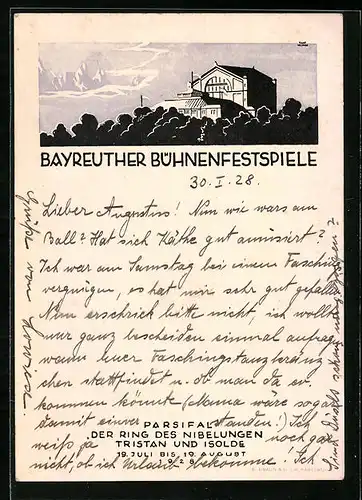 BAYREUTHER BÜHNENFESTSPIELE
30. I. 28.
Lieber Augustus! Nun wie wars am
Ball? Hat sich Käthe gut amüsiert?
Ich war am Samstag bei einem Faschings
vergnügen, es hat mir sehr gut gefallen
Nun erschrick bitte nicht, ich wollt
nur ganz bescheiden einmal anfragen
wann Euer Faschingstanzkränz
chen stattfindet u. ob man da ev.
kommen könnte (Mama wäre sogar
damit einverstanden!) Ich
PARSIFAL
weiß ja noch gar
DER RING DES NIBELUNGEN
TRISTAN UND ISOLDE
19. JULI BIS 19. AUGUST
nicht, ob ich Urlaub bekomme! Ich
Sind Duschls schon umgezogen?
Grüße von